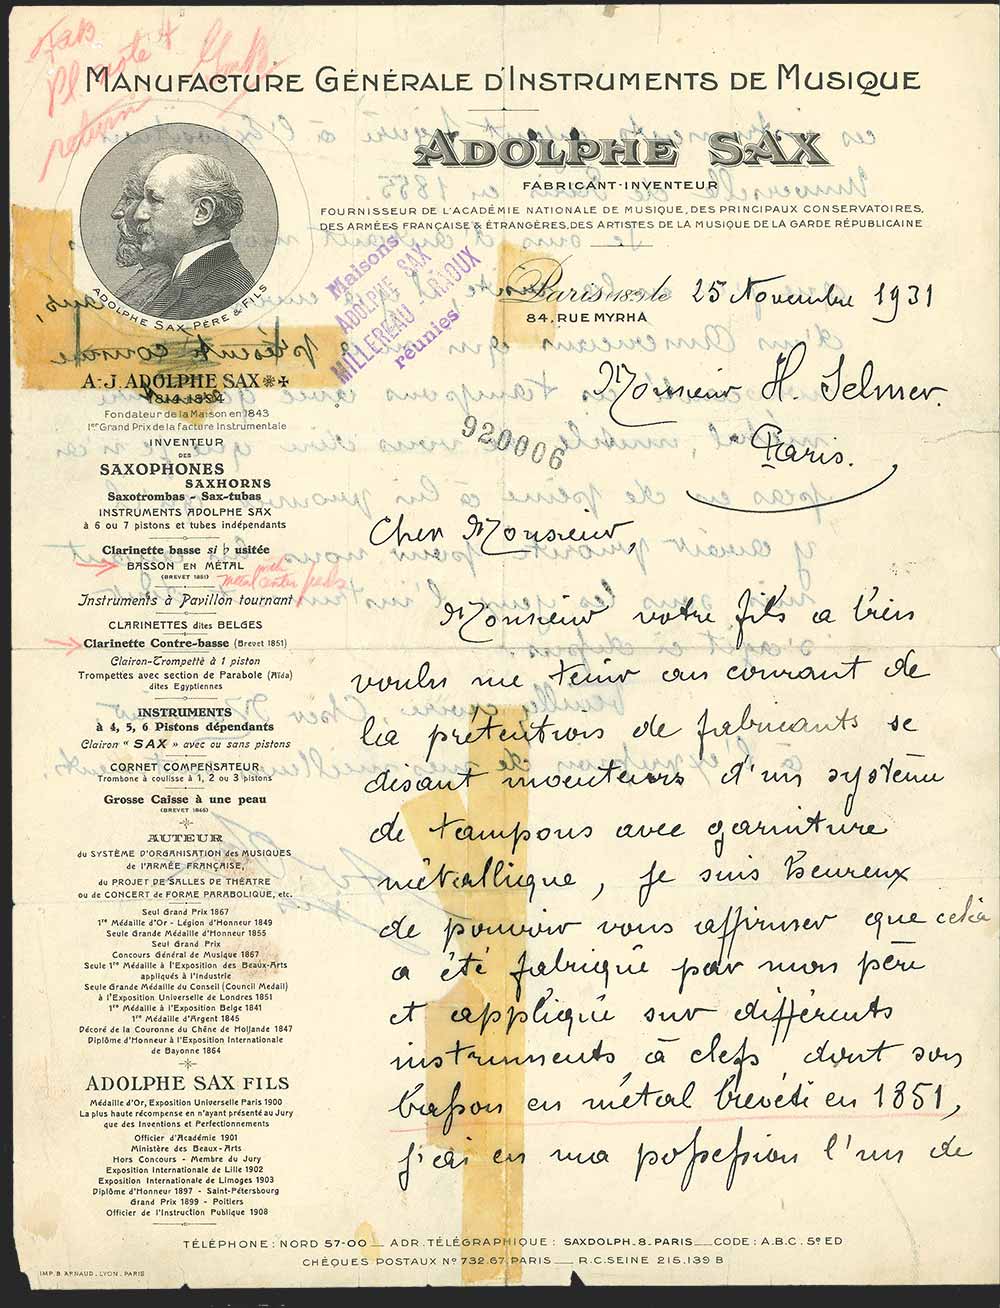 MANUFACTURE GÉNÉRALE D'INSTRUMENTS DE MUSIQUE
ADOLPHE SAX
FABRICANT-INVENTEUR
FOURNISSEUR DE L'ACADÉMIE NATIONALE DE MUSIQUE, DES PRINCIPAUX CONSERVATOIRES,
DES ARMÉES FRANÇAISE & ÉTRANGÈRES, DES ARTISTES DE LA MUSIQUE DE LA GARDE RÉPUBLICAINE
Pl note +
return
ADOLPHE SAX PÈRE & FILS
Maisons
ADOLPHE SAX
MILLEREAU
réunies
Paris 189 le 25 Novembre 1931
84, RUE MYRHA
Monsieur H. Selmer.
Paris.
920006
Cher Monsieur,
Monsieur votre fils a bien
voulu me tenir au courant de
la prétention de fabricants se
disant inventeurs d'un système
de tampons avec garniture
métallique, je suis heureux
de pouvoir vous affirmer que cela
a été fabriqué par mon père
et appliqué sur différents
instruments à clefs dont son
basson en métal breveté en 1851,
j'ai en ma possession l'un de
A.-J. ADOLPHE SAX
1814-1894
Fondateur de la Maison en 1843
1er Grand Prix de la facture Instrumentale
INVENTEUR
DES
SAXOPHONES
SAXHORNS
Saxotrombas - Sax-tubas
INSTRUMENTS ADOLPHE SAX
à 6 ou 7 pistons et tubes indépendants
Clarinette basse si ♭ usitée
BASSON EN MÉTAL
(BREVET 1851)
with
metal center pads
Instruments à Pavillon tournant
CLARINETTES dites BELGES
Clarinette Contre-basse (Brevet 1851)
Clairon-Trompette à 1 piston
Trompettes avec section de Parabole (Aïda)
dites Egyptiennes
INSTRUMENTS
à 4, 5, 6 Pistons dépendants
Clairon "SAX" avec ou sans pistons
CORNET COMPENSATEUR
Trombone à coulisse à 1, 2 ou 3 pistons
Grosse Caisse à une peau
AUTEUR
du SYSTÈME D'ORGANISATION des MUSIQUES
de l'ARMÉE FRANÇAISE,
du PROJET DE SALLES DE THÉATRE
ou de CONCERT de FORME PARABOLIQUE, etc.
Seul Grand Prix 1867
1re Médaille d'Or - Légion d'Honneur 1849
Seule Grande Médaille d'Honneur 1855
Seul Grand Prix
Concours Général de Musique 1867
Seule 1re Médaille à l'Exposition des Beaux-Arts
appliqués à l'Industrie
Seule Grande Médaille du Conseil (Council Medail)
à l'Exposition Universelle de Londres 1851
1re Médaille à l'Exposition Belge 1841
1re Médaille d'Argent 1845
Décoré de la Couronne du Chêne de Hollande 1847
Diplôme d'Honneur à l'Exposition Internationale
de Bayonne 1864
ADOLPHE SAX FILS
Médaille d'Or, Exposition Universelle Paris 1900
La plus haute récompense en n'ayant présenté au Jury
que des Inventions et Perfectionnements
Officier d'Académie 1901
Ministère des Beaux-Arts
Hors Concours - Membre du Jury
Exposition Internationale de Lille 1902
Exposition Internationale de Limoges 1903
Diplôme d'Honneur 1897 - Saint-Pétersbourg
Grand Prix 1899 - Poitiers
Officier de l'Instruction Publique 1908
TÉLÉPHONE: NORD 57-00 — ADR. TÉLÉGRAPHIQUE: SAXDOLPH. 8. PARIS — CODE: A.B.C. 5e ED
CHÈQUES POSTAUX No 732.67. PARIS — R.C. SEINE 215.139 B
IMP. B. ARNAUD. LYON. PARIS